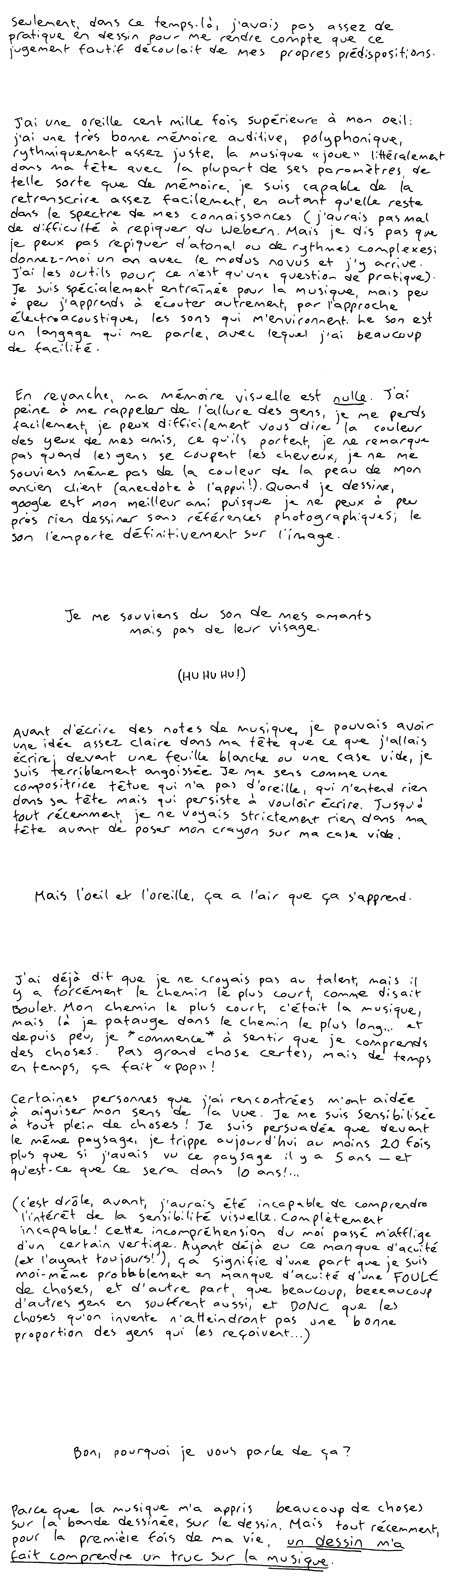 Seulement, dans ce temps-là, j'avais pas assez de
pratique en dessin pour me rendre compte que ce
jugement fautif découlait de mes propres prédispositions.
J'ai une oreille cent mille fois supérieure à mon oeil:
j'ai une très bonne mémoire auditive, polyphonique,
rythmiquement assez juste, la musique «joue» littéralement
dans ma tête avec la plupart de ses paramètres, de
telle sorte que de mémoire, je suis capable de la
retranscrire assez facilement, en autant qu'elle reste
dans le spectre de mes connaissances (j'aurais pas mal
de difficulté à repiquer du Webern. Mais je dis pas que
je peux pas repiquer d'atonal ou de rythmes complexes;
donnez-moi un an avec le modus novus et j'y arrive.
J'ai les outils pour, ce n'est qu'une question de pratique).
Je suis spécialement entraînée pour la musique, mais peu
à peu j'apprends à écouter autrement, par l'approche
électroacoustique, les sons qui m'environnent. Le son est
un langage qui me parle, avec lequel j'ai beaucoup
de facilité.
En revanche, ma mémoire visuelle est nulle. J'ai
peine à me rappeler de l'allure des gens, je me perds
facilement, je peux difficilement vous dire la couleur
des yeux de mes amis, ce qu'ils portent, je ne remarque
pas quand les gens se coupent les cheveux, je ne me
souviens même pas de la couleur de la peau de mon
ancien client (anecdote à l'appui!). Quand je dessine,
google est mon meilleur ami puisque je ne peux à peu
près rien dessiner sans références photographiques; le
son l'emporte définitivement sur l'image.
Je me souviens du son de mes amants
mais pas de leur visage.
(HU HU HU!)
Avant d'écrire des notes de musique, je pouvais avoir
une idée assez claire dans ma tête que ce que j'allais
écrire; devant une feuille blanche ou une case vide, je
suis terriblement angoissée. Je me sens comme une
compositrice têtue qui n'a pas d'oreille, qui n'entend rien
dans sa tête mais qui persiste à vouloir écrire. Jusqu'à
tout récemment, je ne voyais strictement rien dans ma
tête avant de poser mon crayon sur ma case vide.
Mais l'oeil et l'oreille, ça a l'air que ça s'apprend.
J'ai déjà dit que je ne croyais pas au talent, mais il
y a forcément le chemin le plus court, comme disait
Boulet. Mon chemin le plus court, c'était la musique,
mais là je patauge dans le chemin le plus long... et
depuis peu, je *commence* à sentir que je comprends
des choses. Pas grand chose certes, mais de temps
en temps, ça fait «pop»!
Certaines personnes que j'ai rencontrées m'ont aidée
à aiguiser mon sens de la vue. Je me suis sensibilisée
à tout plein de choses! Je suis persuadée que devant
le même paysage, je trippe aujourd'hui au moins 20 fois
plus que si j'avais vu ce paysage il y a 5 ans — et
qu'est-ce que ce sera dans 10 ans!...
(c'est drôle, avant, j'aurais été incapable de comprendre
l'intérêt de la sensibilité visuelle. Complètement
incapable! Cette incompréhension du moi passé m'afflige
d'un certain vertige. Ayant déjà eu ce manque d'acuité
(et l'ayant toujours!), ça signifie d'une part que je suis
moi-même probablement en manque d'acuité d'une FOULE
de choses, et d'autre part, que beaucoup, beeeaucoup
d'autres gens en souffrent aussi, et DONC que les
choses qu'on invente n'atteindront pas une bonne
proportion des gens qui les reçoivent...)
Bon, pourquoi je vous parle de ça?
Parce que la musique m'a appris beaucoup de choses
sur la bande dessinée, sur le dessin. Mais tout récemment,
pour la première fois de ma vie, un dessin m'a
fait comprendre un truc sur la musique.